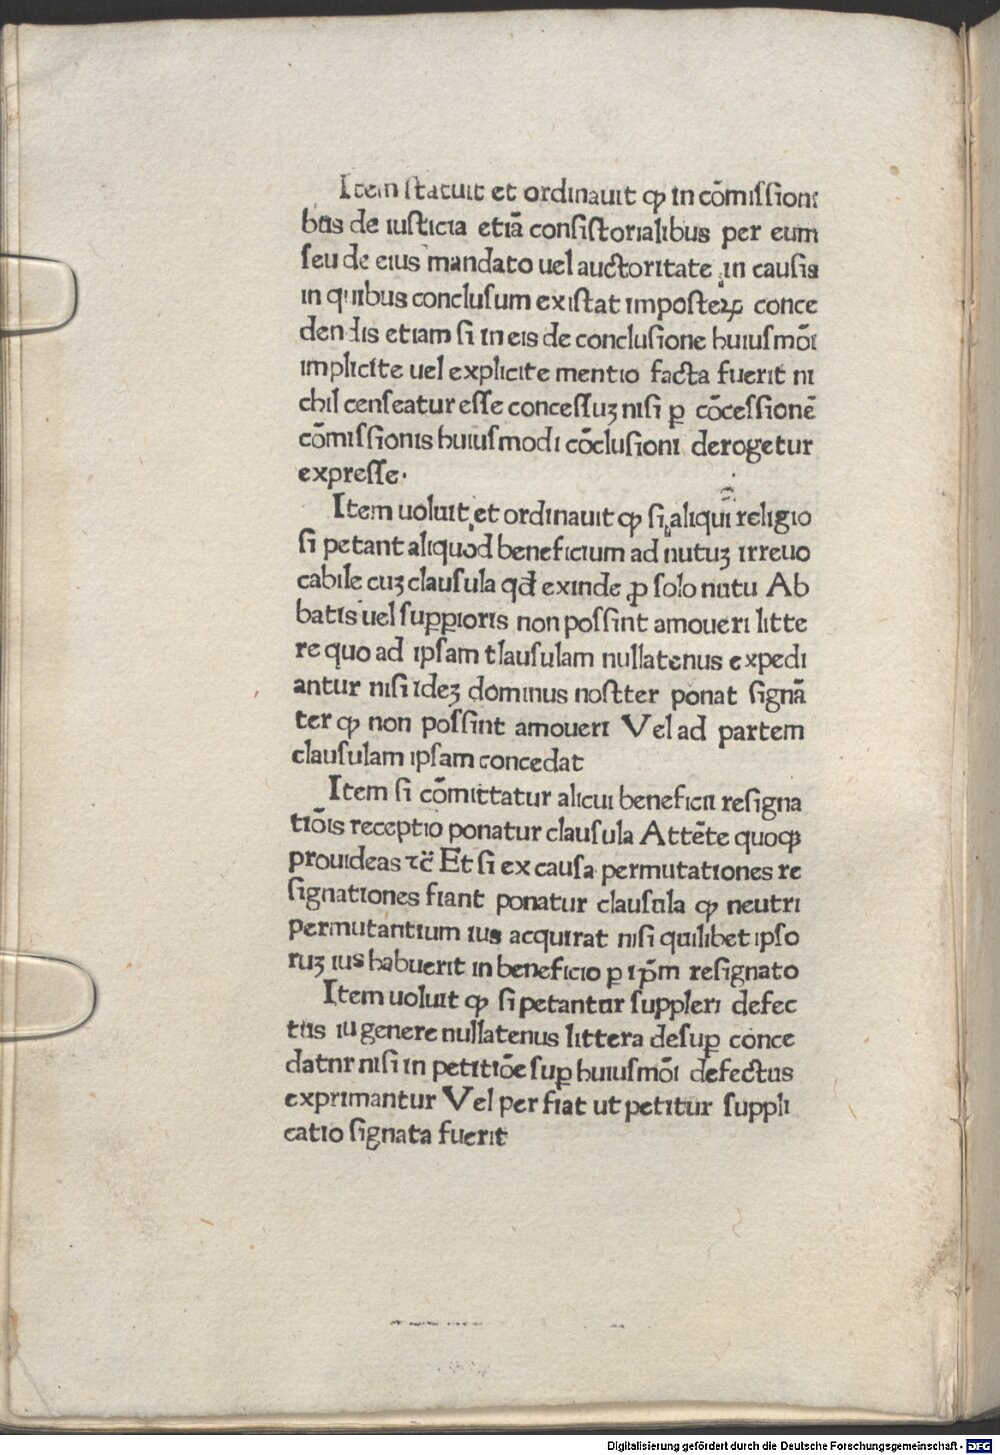 Item ſtatuit et ordinauit ꝙ in cōmiſſioni
bus de iuſticia etiā conſiſtorialibus per eum
ſeu de eius mandato uel auctoritate in cauſis
in quibus concluſum exiſtat impoſteꝝ conce
dendis etiam ſi in eis de concluſione huiuſmōi
implicite uel explicite mentio facta fuerit ni
chil cenſeatur eſſe conceſſuꝫ niſi ꝑ cōceſſionē
cōmiſſionis huiuſmodi cōcluſioni derogetur
expreſſe.
Item uoluit et ordinauit ꝙ ſi aliqui religio
ſi petant aliquod beneficium ad nutuꝫ irreuo
cabile cuꝫ clauſula qđ exinde ꝓ ſolo nutu Ab
batis uel ſuꝑꝑioris non poſſint amoueri litte
re quo ad ipſam tlauſulam nullatenus expedi
antur niſi ideꝫ dominus noſtter ponat ſignā
ter ꝙ non poſſint amoueri Vel ad partem
clauſulam ipſam concedat
Item ſi cōmittatur alicui beneficii reſigna
tiōis receptio ponatur clauſula Attēte quoqꝫ
prouideas ⁊c̄ Et ſi ex cauſa permutationes re
ſignationes fiant ponatur clauſula ꝙ neutri
permutantium ius acquirat niſi quilibet ipſo
ruꝫ ius habuerit in beneficio ꝑ ip̄m reſignato
Item uoluit ꝙ ſi petantur ſuppleri defec
tus iu genere nullatenus littera deſuꝑ conce
datnr niſi in petitiōe ſuꝑ huiuſmōi defectus
exprimantur Vel per fiat ut petitur ſuppli
catio ſignata fuerit
Digitalisierung gefördert durch die Deutsche Forschungsgemeinschaft - DFG